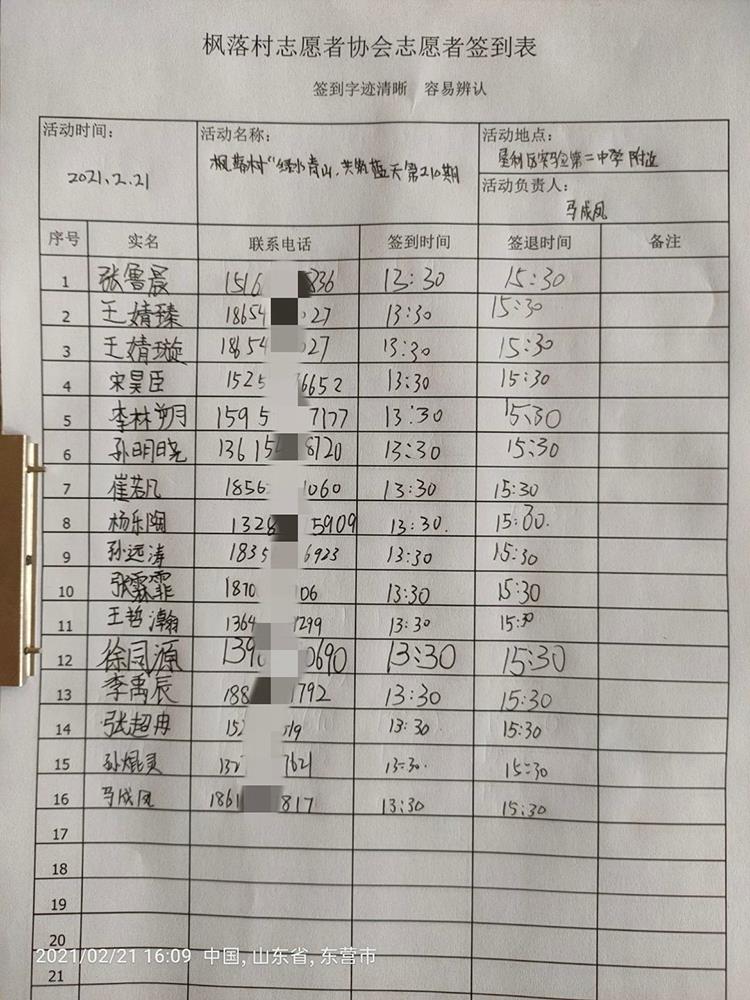 枫落村志愿者协会志愿者签到表
签到字迹清晰 容易辨认
活动时间: 活动名称: 活动地点:
2021.2.21 枫落村"绿水青山,共筑蓝天第210期 垦利区实验第二中学附近
活动负责人:
马成凤
序号 实名 联系电话 签到时间 签退时间 备注
1 张鲁晨 1516 836 13:30 15:30
2 王婧臻 18654 027 13:30 15:30
3 王婧璇 18654 027 13:30 15:30
4 宋昊臣 1525 6652 13:30 15:30
5 李林朔 1595 7177 13:30 15:30
6 孙明晓 13615 8720 13:30 15:30
7 崔若凡 1856 1060 13:30 15:30
8 杨乐陶 1328 5909 13:30. 15:30.
9 孙远涛 1835 6923 13:30 15:30
10 张霖霏 1870 06 13:30 15:30
11 王哲瀚 1364 299 13:30 15:30
12 徐同源 139 0690 13:30 15:30
13 李禹辰 188 1792 13:30 15:30
14 张超冉 152 519 13:30 15:30
15 孙焜灵 132 7621 13:30. 15:30
16 马成凤 1861 817 13:30 15:30
17
18
19
20
2021/02/21 16:09 中国,山东省,东营市
21